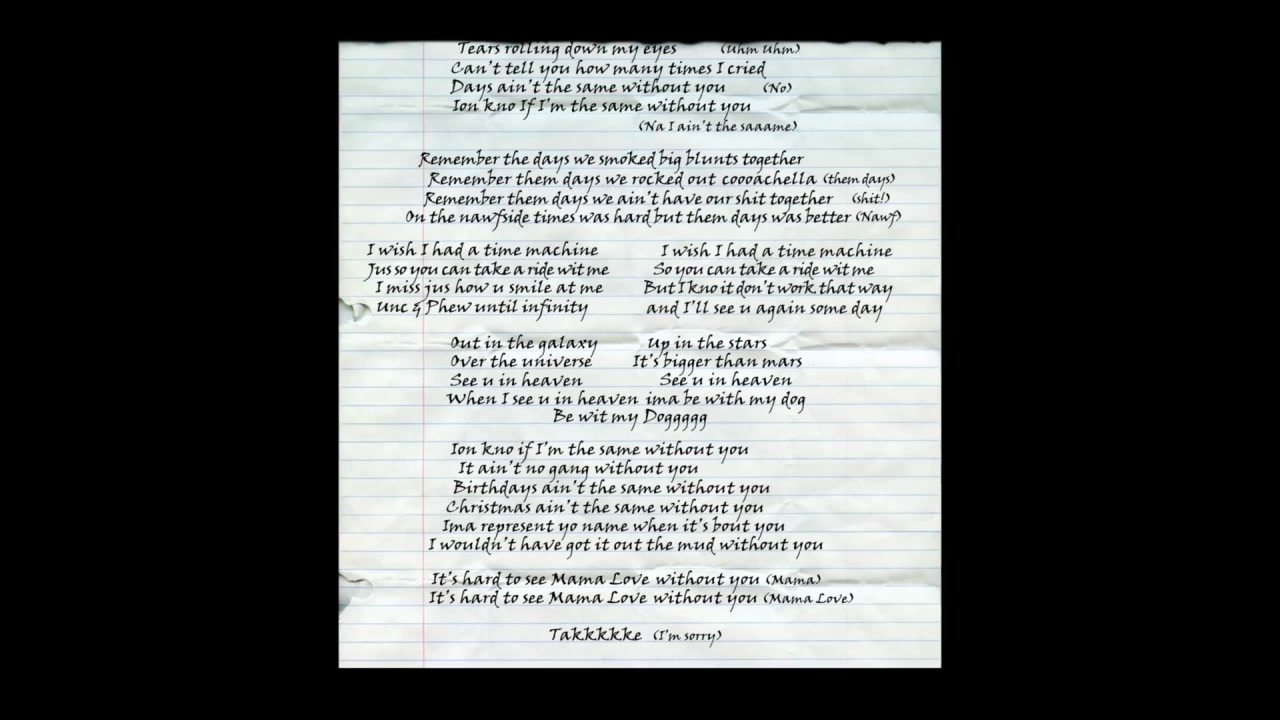 Tears rolling down my eyes (Uhm Uhm)
Can't tell you how many times I cried
Days ain't the same without you (No)
Ion kno If I'm the same without you
(Na I ain't the saaame)
Remember the days we smoked big blunts together
Remember them days we rocked out coooachella (them days)
Remember them days we ain't have our shit together (shit!)
On the nawfside times was hard but them days was better (Nawf)
I wish I had a time machine
Jus so you can take a ride wit me
I miss jus how u smile at me
Unc & Phew until infinity
I wish I had a time machine
So you can take a ride wit me
But I kno it don't work that way
and I'll see u again some day
Out in the galaxy
Over the universe
See u in heaven
Up in the stars
It's bigger than mars
See u in heaven
When I see u in heaven ima be with my dog
Be wit my Doggggg
Ion kno if I'm the same without you
It ain't no gang without you
Birthdays ain't the same without you
Christmas ain't the same without you
Ima represent yo name when it's bout you
I wouldn't have got it out the mud without you
It's hard to see Mama Love without you (Mama)
It's hard to see Mama Love without you (Mama Love)
Takkkkke (I'm sorry)